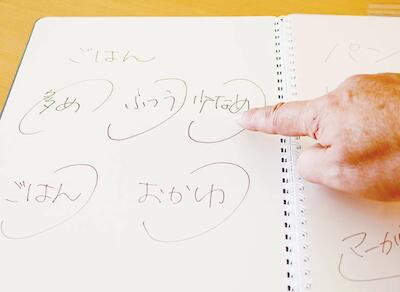 ごはん
多め ふつう 少なめ
ごはん おかゆ
パン
マーガ